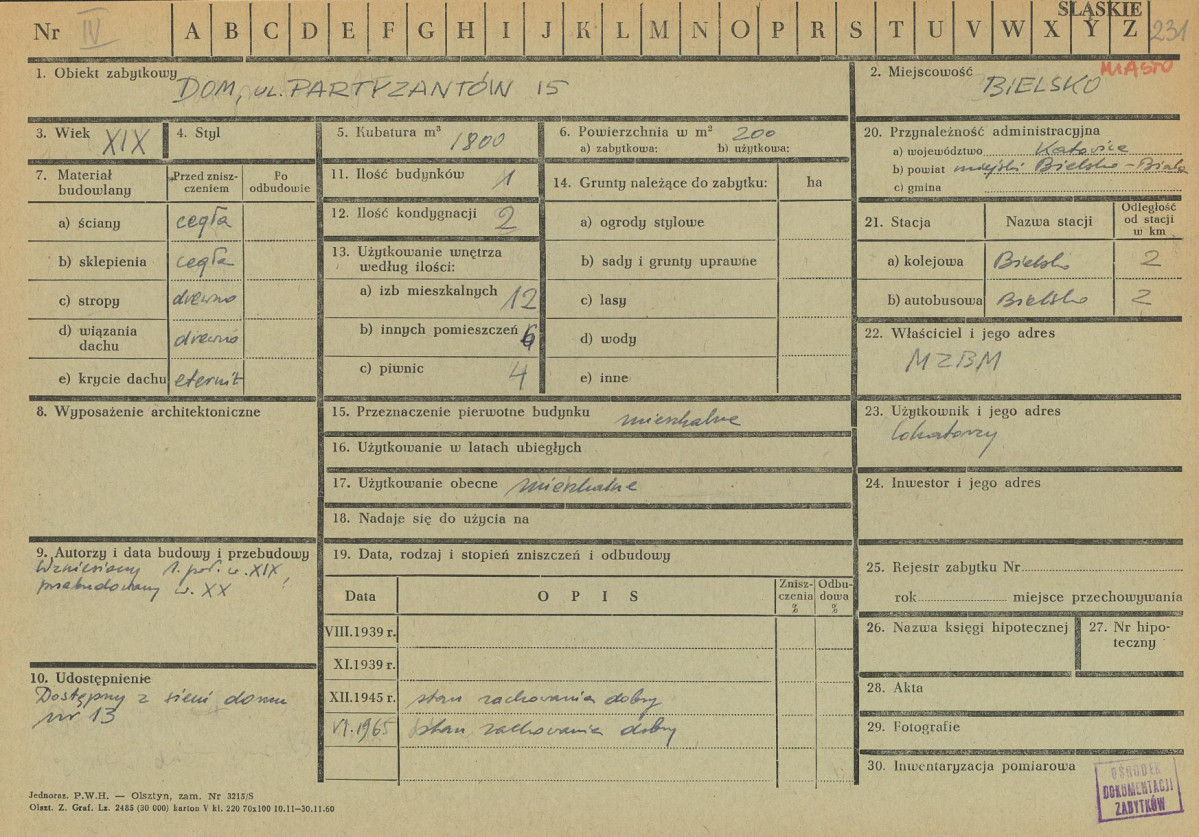 ŚLĄSKIE
Nr IV A B C D E F G H I J K L M N O P R S T U V W X Y Z 231
1. Obiekt zabytkowy
DOM, UL. PARTYZANTÓW 15
2. Miejscowość MIASTO
BIELSKO
3. Wiek XIX
4. Styl
5. Kubatura m³ 1800
6. Powierzchnia w m² 200
a) zabytkowa: b) użytkowa:
20. Przynależność administracyjna
a) województwo Katowice
b) powiat miejski Bielsko-Biała
c) gmina
7. Materiał budowlany
Przed zniszczeniem
Po odbudowie
a) ściany cegła
b) sklepienia cegła
c) stropy drewno
d) wiązania dachu drewno
e) krycie dachu eternit
11. Ilość budynków 1
12. Ilość kondygnacji 2
13. Użytkowanie wnętrza
według ilości:
a) izb mieszkalnych 12
b) innych pomieszczeń 6
c) piwnic 4
14. Grunty należące do zabytku: ha
a) ogrody stylowe
b) sady i grunty uprawne
c) lasy
d) wody
e) inne
21. Stacja Nazwa stacji Odległość od stacji w km
a) kolejowa Bielsko 2
b) autobusowa Bielsko 2
22. Właściciel i jego adres
MZBM
8. Wyposażenie architektoniczne
15. Przeznaczenie pierwotne budynku mieszkalne
16. Użytkowanie w latach ubiegłych
17. Użytkowanie obecne mieszkalne
18. Nadaje się do użycia na
23. Użytkownik i jego adres
lokatorzy
24. Inwestor i jego adres
9. Autorzy i data budowy i przebudowy
Wzniesiony 1. poł. w. XIX,
przebudowany w. XX
19. Data, rodzaj i stopień zniszczeń i odbudowy
Data OPIS Zniszczenia % Odbudowa %
VIII.1939 r.
XI.1939 r.
XII.1945 r. stan zachowania dobry
VI.1965 stan zachowania dobry
10. Udostępnienie
Dostępny z sieni domu
nr 13
25. Rejestr zabytku Nr
rok miejsce przechowywania
26. Nazwa księgi hipotecznej
27. Nr hipoteczny
28. Akta
29. Fotografie
30. Inwentaryzacja pomiarowa
OŚRODEK
DOKUMENTACJI
ZABYTKÓW
Jednoraz. P.W.H. — Olsztyn, zam. Nr 3215/S
Olszt. Z. Graf. Lz. 2485 (30 000) karton V kl. 220 70x100 10.11—30.11.60